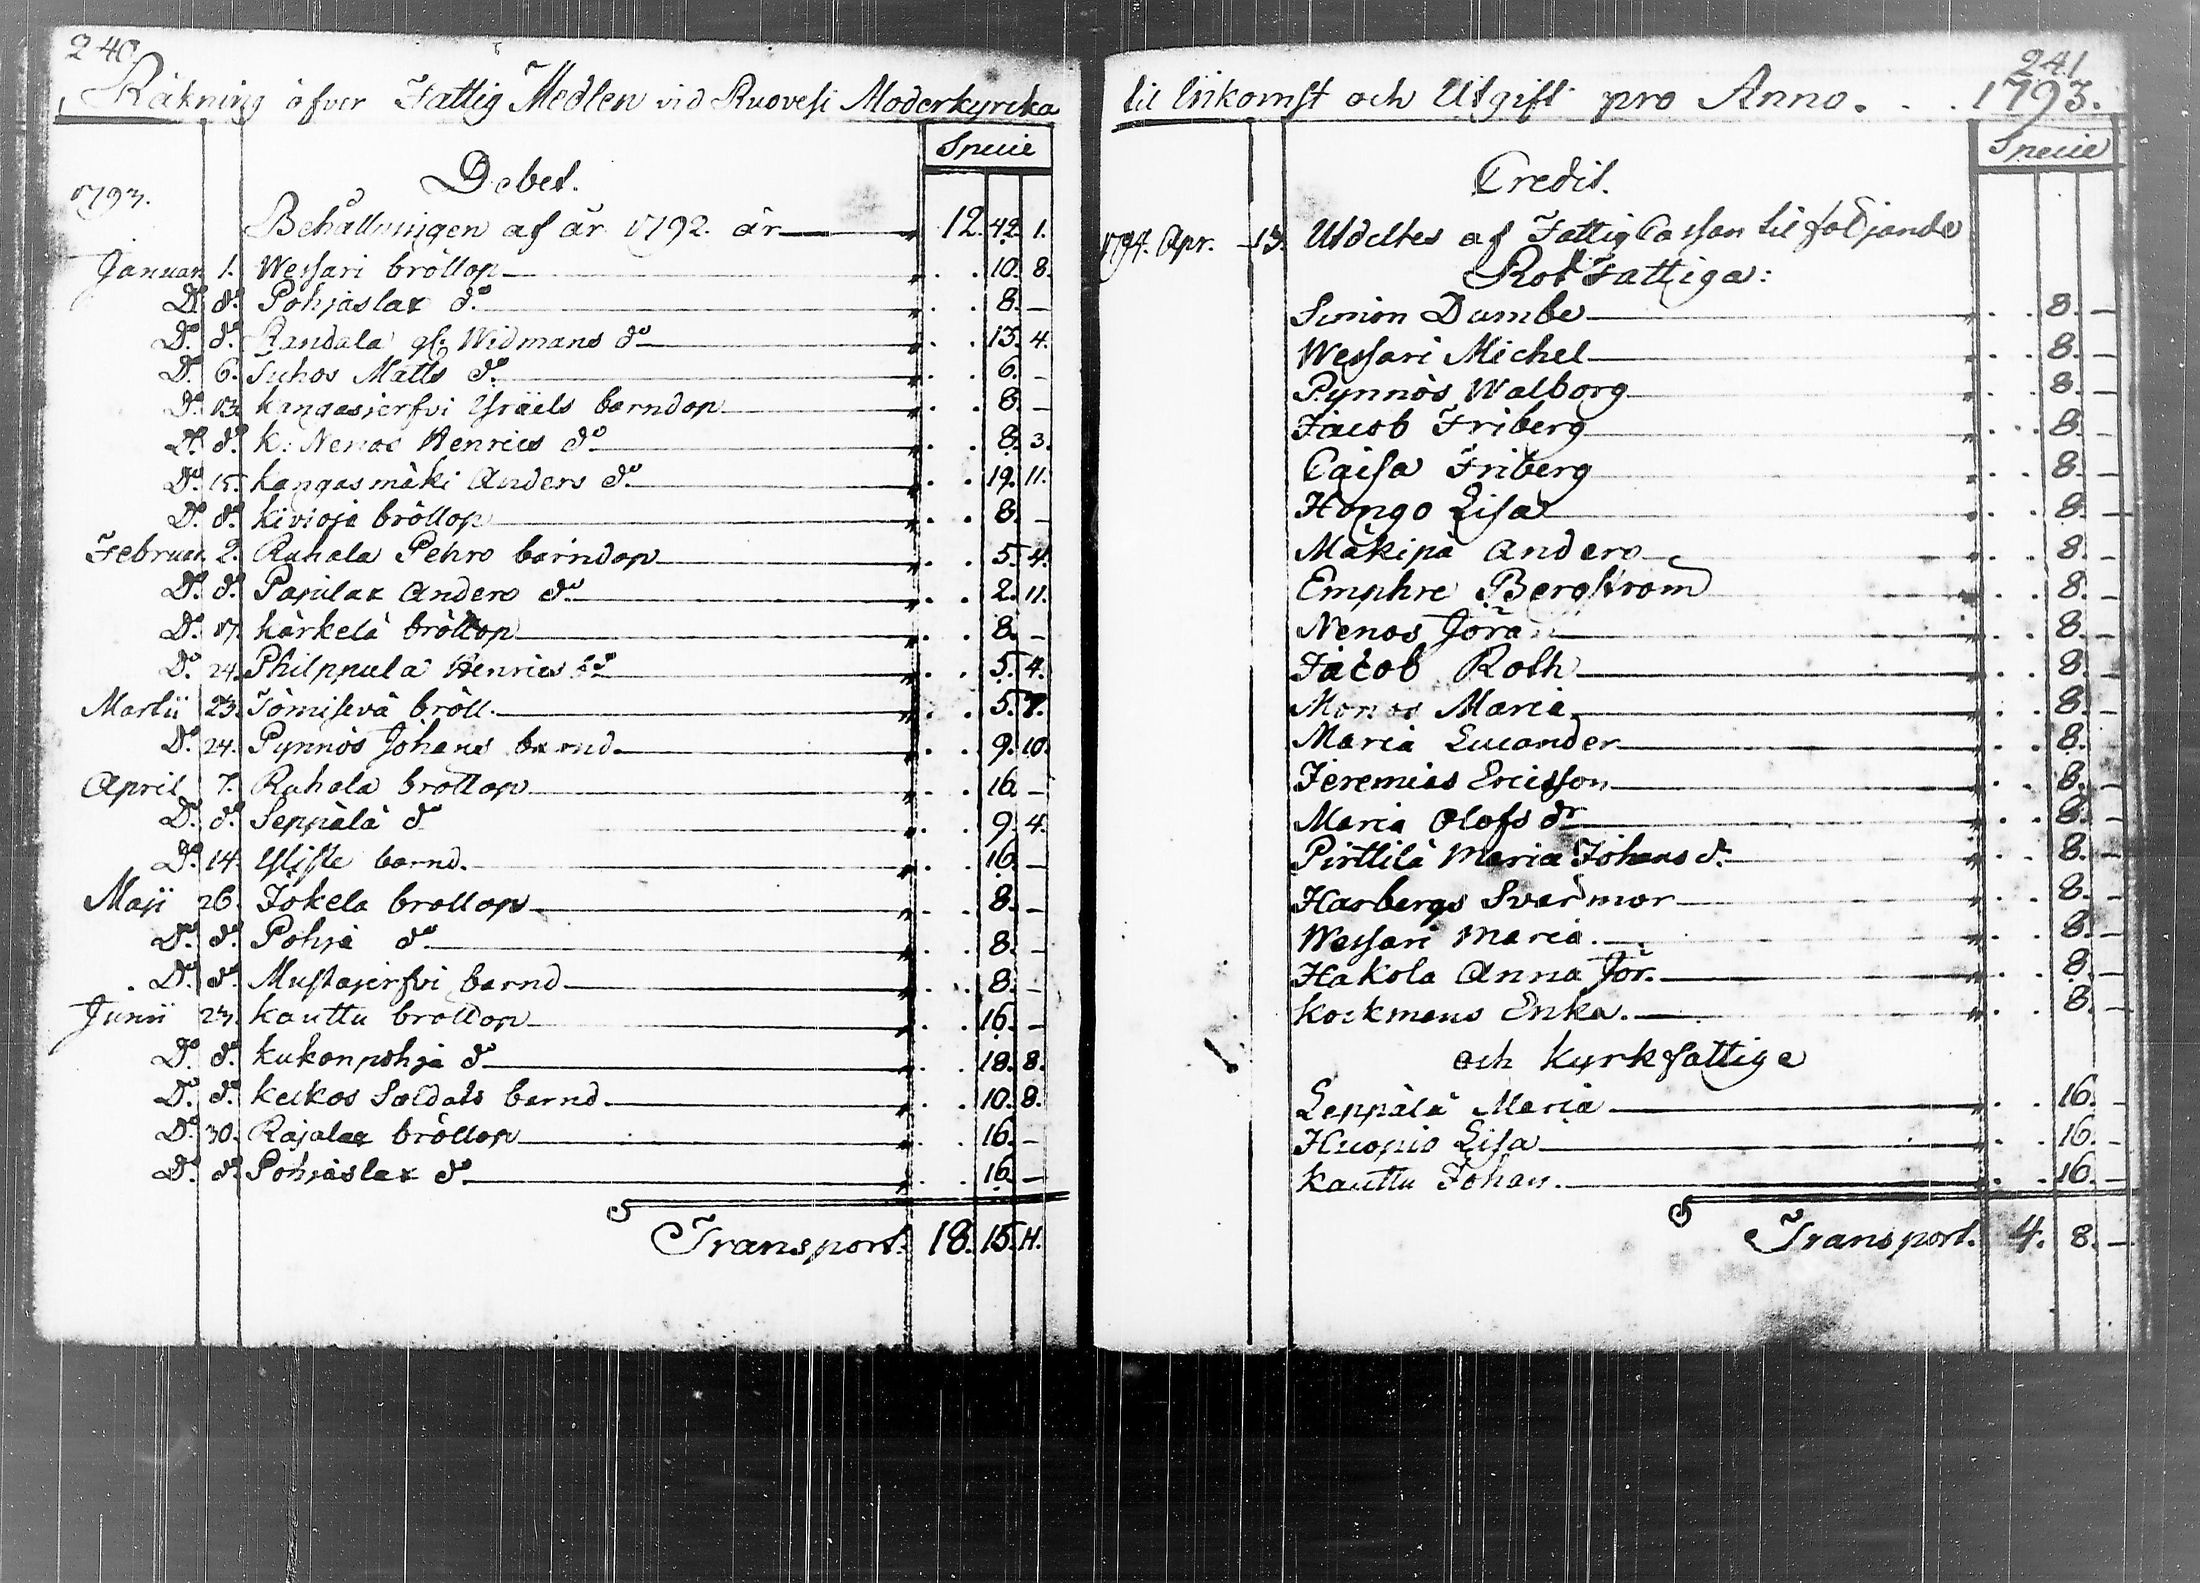 240.
Räkning öfver Fattig Medlen vid Ruovesi Moderkyrcka
Specie
Debet.
1793.
Behållningen af år 1792. är 12. 42. 1.
Januari 1. Wessari bröllop 10. 8.
Do do Pohjaslax do 8. –
Do do Randala gl: Widmans do 13. 4.
Do 6. Suhos Matts do 6. –
Do 13. Kangasjerfvi Israels barndop 8. –
Do do K: Nenos Henrics do 8. 3.
Do 15. Kangasmäki Anders do 19. 11.
Do do Kivioja bröllop 8. –
Februar. 2. Ruhala Pehrs barndop 5. 4.
Do do Pajulax Anders do 2. 11.
Do 17. Härkelä bröllop 8. –
Do 24. Philppula Henrics do 5. 4.
Martii 23. Tömisevä bröll. 5. 7.
Do 24. Pynnös Johans barnd. 9. 10.
April 7. Ruhala bröllop 16. –
Do do Seppälä do 9. 4.
Do 14. barnd. 16. –
Maji 26. Jokela bröllop 8. –
Do do Pohja do 8. –
Do do Mustajerfvi barnd 8. –
Junii 23. Kauttu bröllop 16. –
Do do Kukonpohja do 18. 8.
Do do Keikos Soldats barnd. 10. 8.
Do 30. Rajalax bröllop 16. –
Do do Pohjaslax do 16. –
Transport. 18. 15. 11.
241.
til Inkomst och Utgift pro Anno. . . 1793.
Specie
Credit.
1794. Apr. 13. Utdeltes af Fattig Cassan til följande
Rot Fattiga:
Simon Dumbe 8. –
Wessari Michel 8. –
Pynnös Walborg 8. –
Jacob Friberg 8. –
Caisa Friberg 8. –
Hongo Lisa 8. –
Mäkipä Anders 8. –
Emphre Bergström 8. –
Nenos Jöran 8. –
Jacob Roth 8. –
Monos Maria 8. –
Maria Lucander 8. –
Jeremias Ericsson 8. –
Maria Olofs dr 8. –
Pirttilä Maria Johans dr 8. –
Harbergs Svärmor 8. –
Wessari Maria. 8. –
Hakola Anna Jör. 8. –
Kockmans Enka. 8. –
och Kyrkfattige
Leppälä Maria 16. –
Huopio Lisa 16. –
Kauttu Johan. 16. –
Transport. 4. 8. –